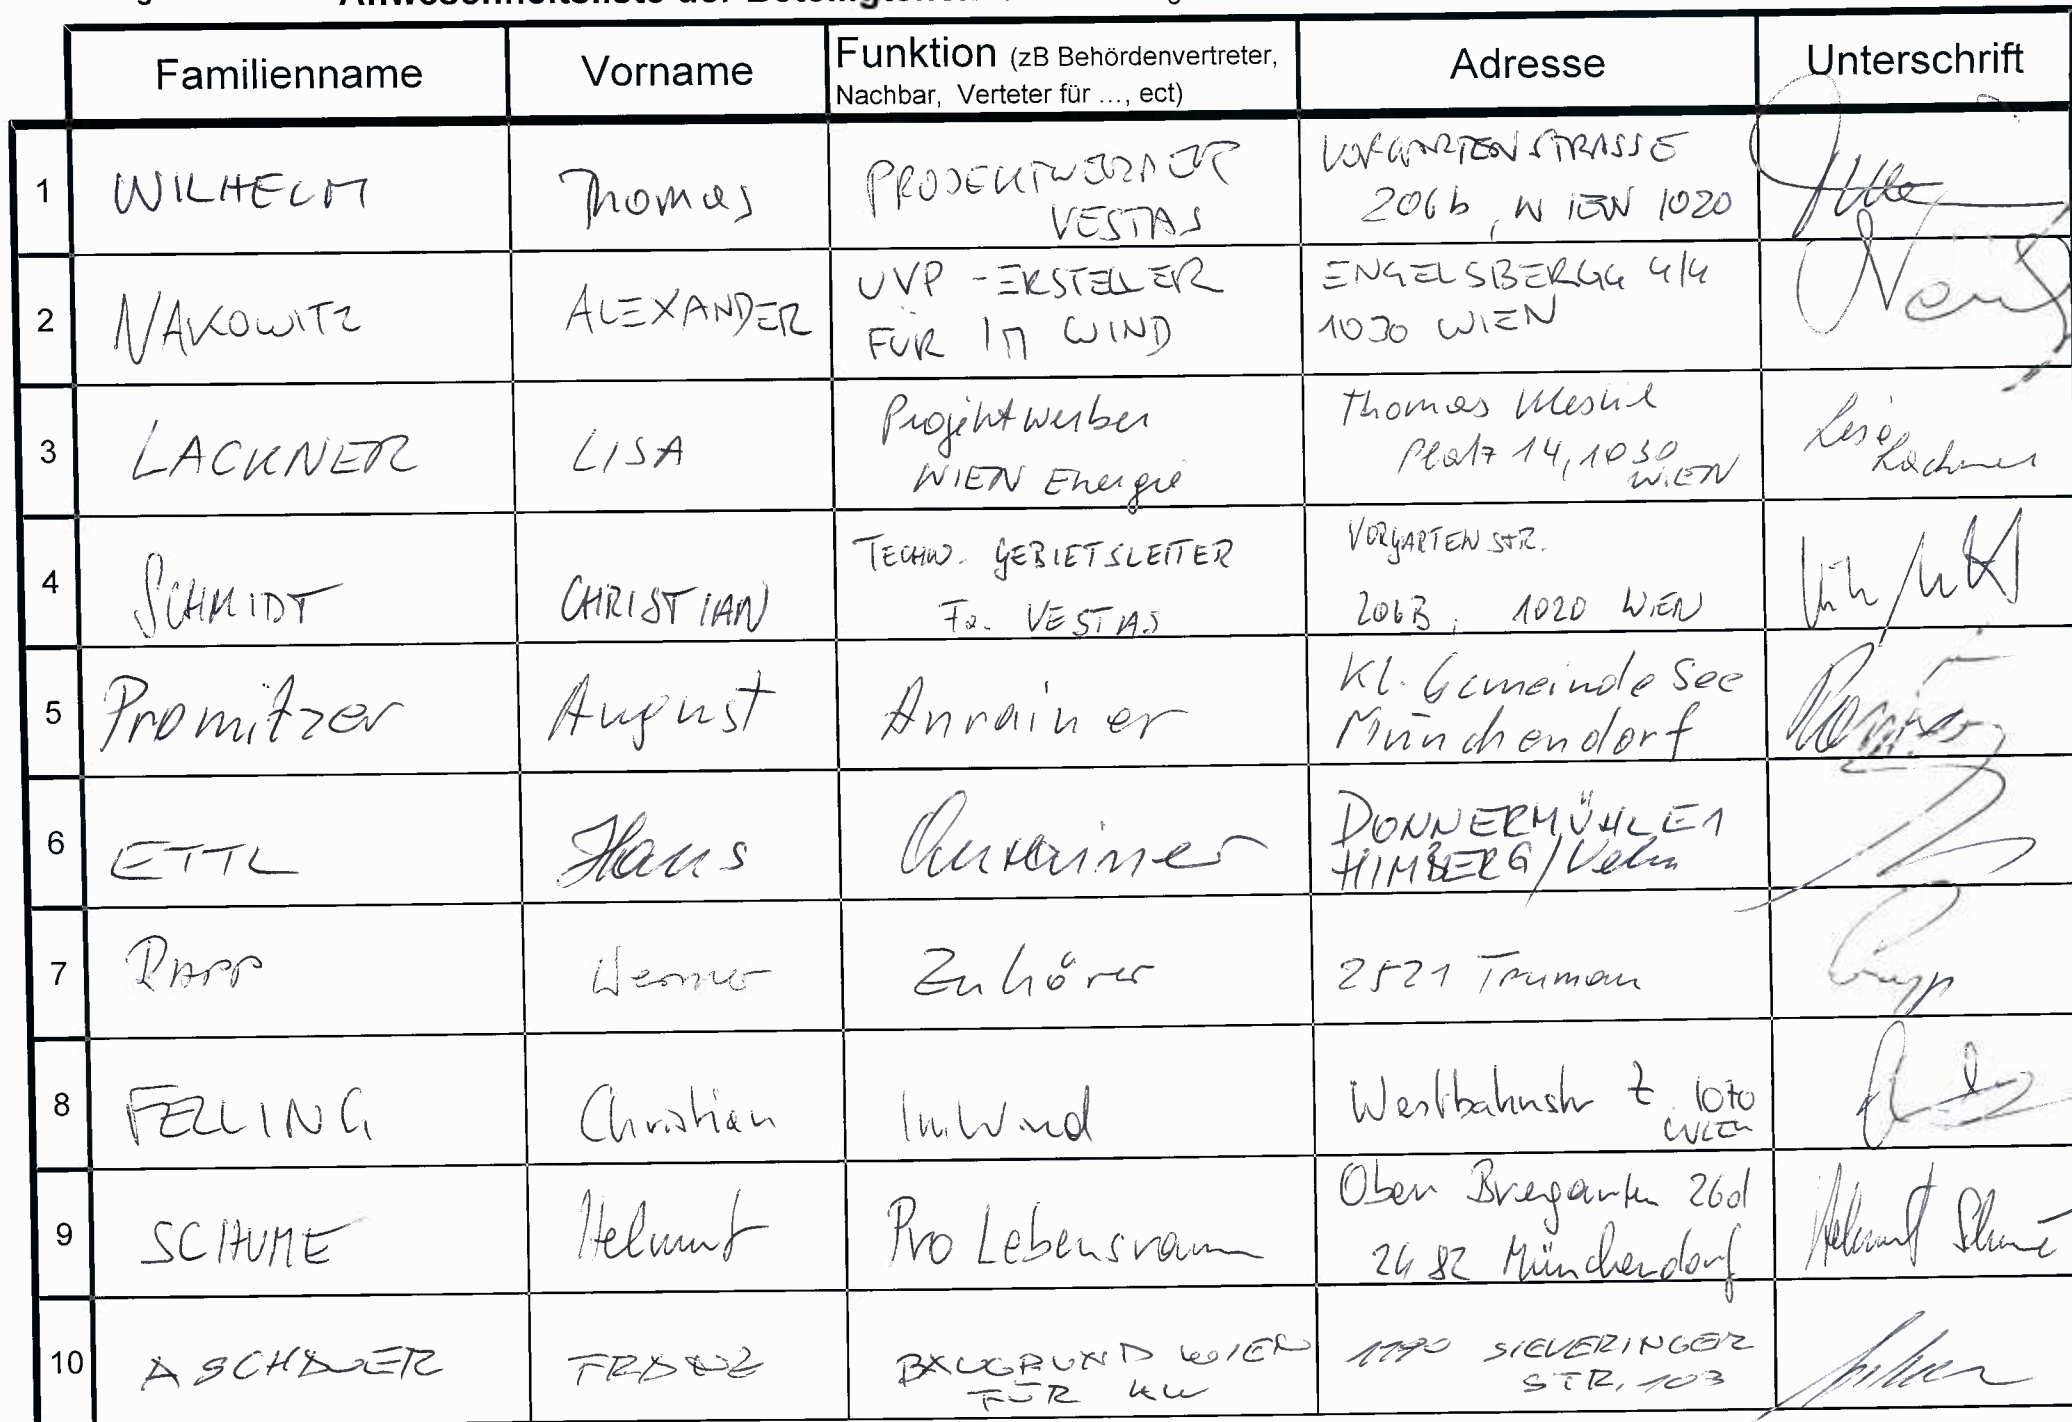 Anwesenheitsliste der Beteiligten
Familienname Vorname Funktion (zB Behördenvertreter, Nachbar, Verteter für ..., ect) Adresse Unterschrift
1 WILHELM Thomas PROJEKTWERBER VORGARTENSTRASSE
VESTAS 206b, WIEN 1020
2 NAKOWITZ ALEXANDER UVP-ERSTELLER ENGELSBERGG 4/4
FÜR IM WIND 1030 WIEN
3 LACKNER LISA Projektwerber Thomas Klestil
WIEN Energie Platz 14, 1030 WIEN Lisa Lackner
4 SCHMIDT CHRISTIAN TECHN. GEBIETSLEITER VORGARTENSTR.
Fa. VESTAS 206B, 1020 WIEN
5 Promitzer August Anrainer Kl. Gemeinde See
Münchendorf
6 ETTL Hans Anrainer DONNERMÜHLE 1
HIMBERG/Velm
7 RAPP Werner Zuhörer 2521 Trumau
8 FELLING Christian ImWind Westbahnstr 7 1070
WIEN
9 SCHUME Helmut Pro Lebensraum 26d
2482 Münchendorf Helmut Schume
10 ASCHAUER FRANZ BAUGRUND WIEN 1190 SIEVERINGER
FÜR STR. 103